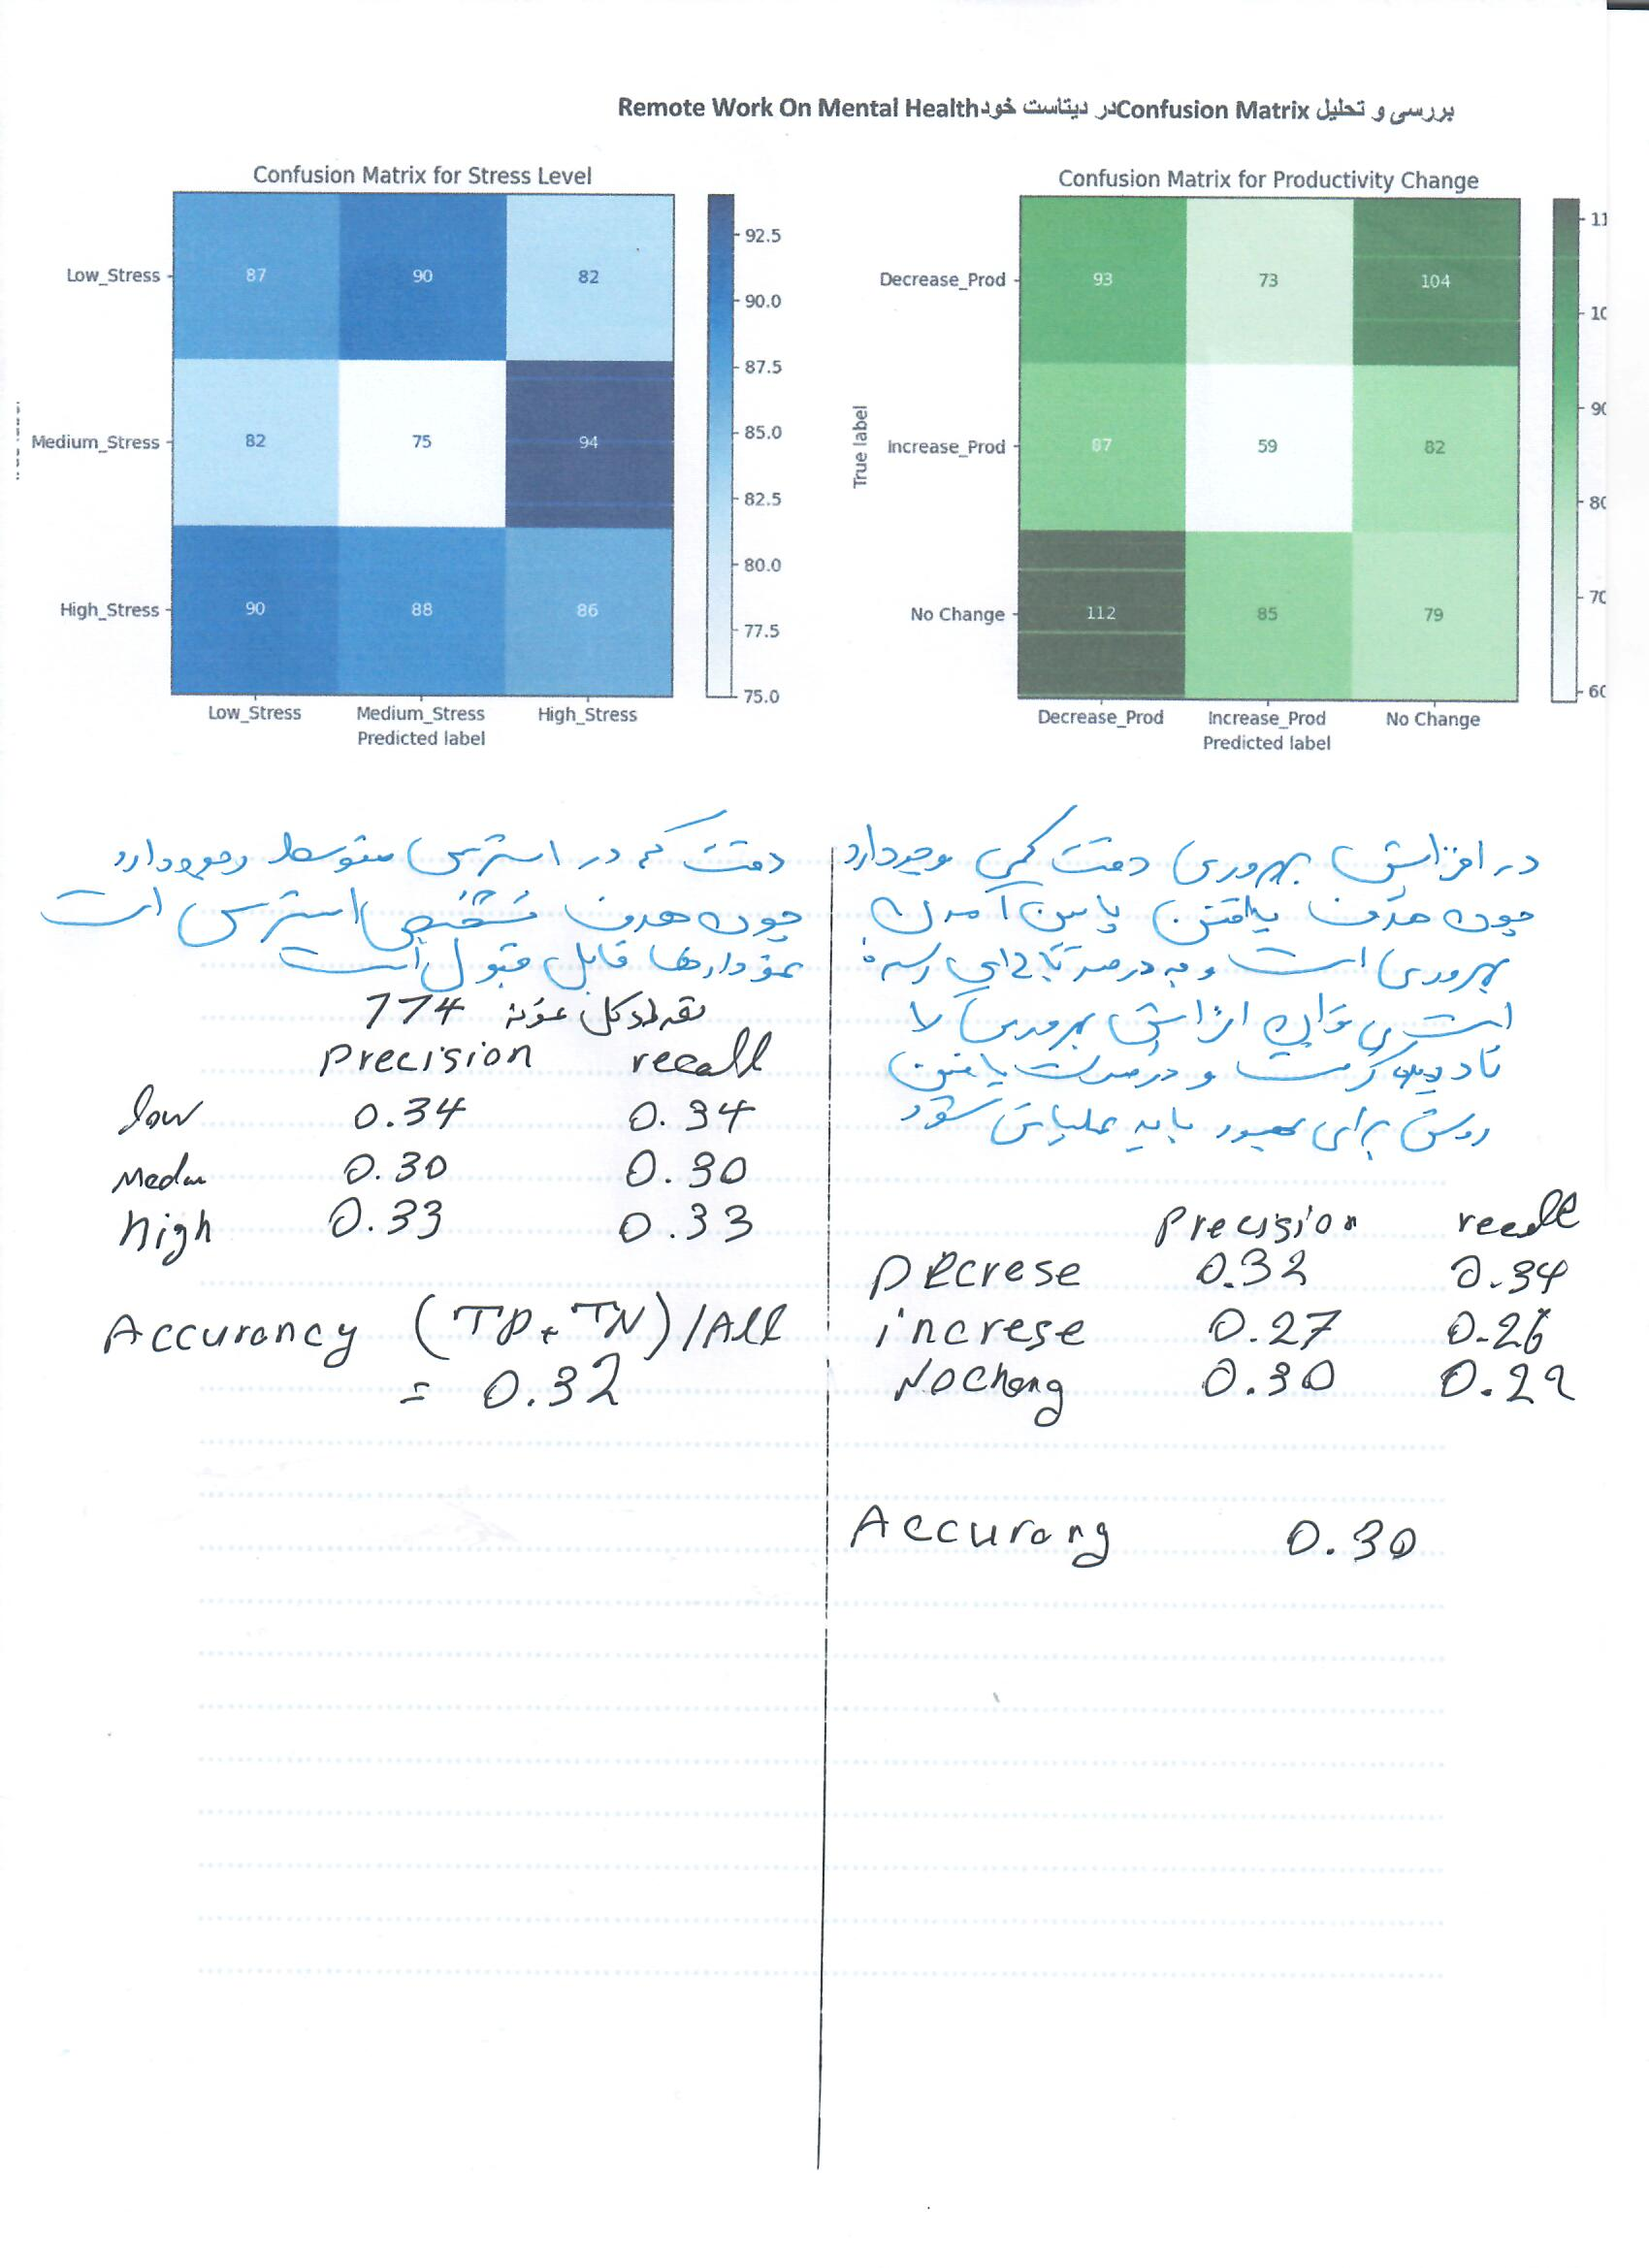 بررسی و تحلیل Confusion Matrix در دیتاست خود Remote Work On Mental Health
Confusion Matrix for Stress Level
Low_Stress
87
90
82
Medium_Stress
82
75
94
High_Stress
90
88
86
Low_Stress
Medium_Stress
High_Stress
Predicted label
92.5
90.0
87.5
85.0
82.5
80.0
77.5
75.0
Confusion Matrix for Productivity Change
True label
Decrease_Prod
93
73
104
Increase_Prod
87
59
82
No Change
112
85
79
Decrease_Prod
Increase_Prod
No Change
Predicted label
دقت کم در استرس متوسط وجود دارد
چون هدف تشخیص استرس است
نمودارها قابل قبول است
تعداد کل نمونه 774
precision recall
low 0.34 0.34
0.30 0.30
high 0.33 0.33
Accurancy (TP+TN)/All
= 0.32
در افزایش بهروری دقت کمی وجود دارد
چون هدف یافتن پایین آمدن
بهروری است و به درصد
است می توان افزایش بهروری را
نادیده گرفت و درصدد یافتن
روشی برای بهبود باید
precision recall
Decrese 0.32 0.34
increse 0.27 0.26
Nochang 0.30 0.29
0.30